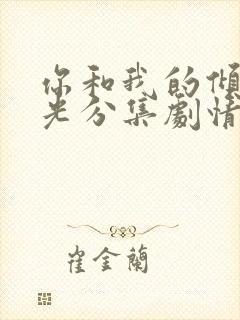 你和我的倾
光分集劇情
崔金蘭